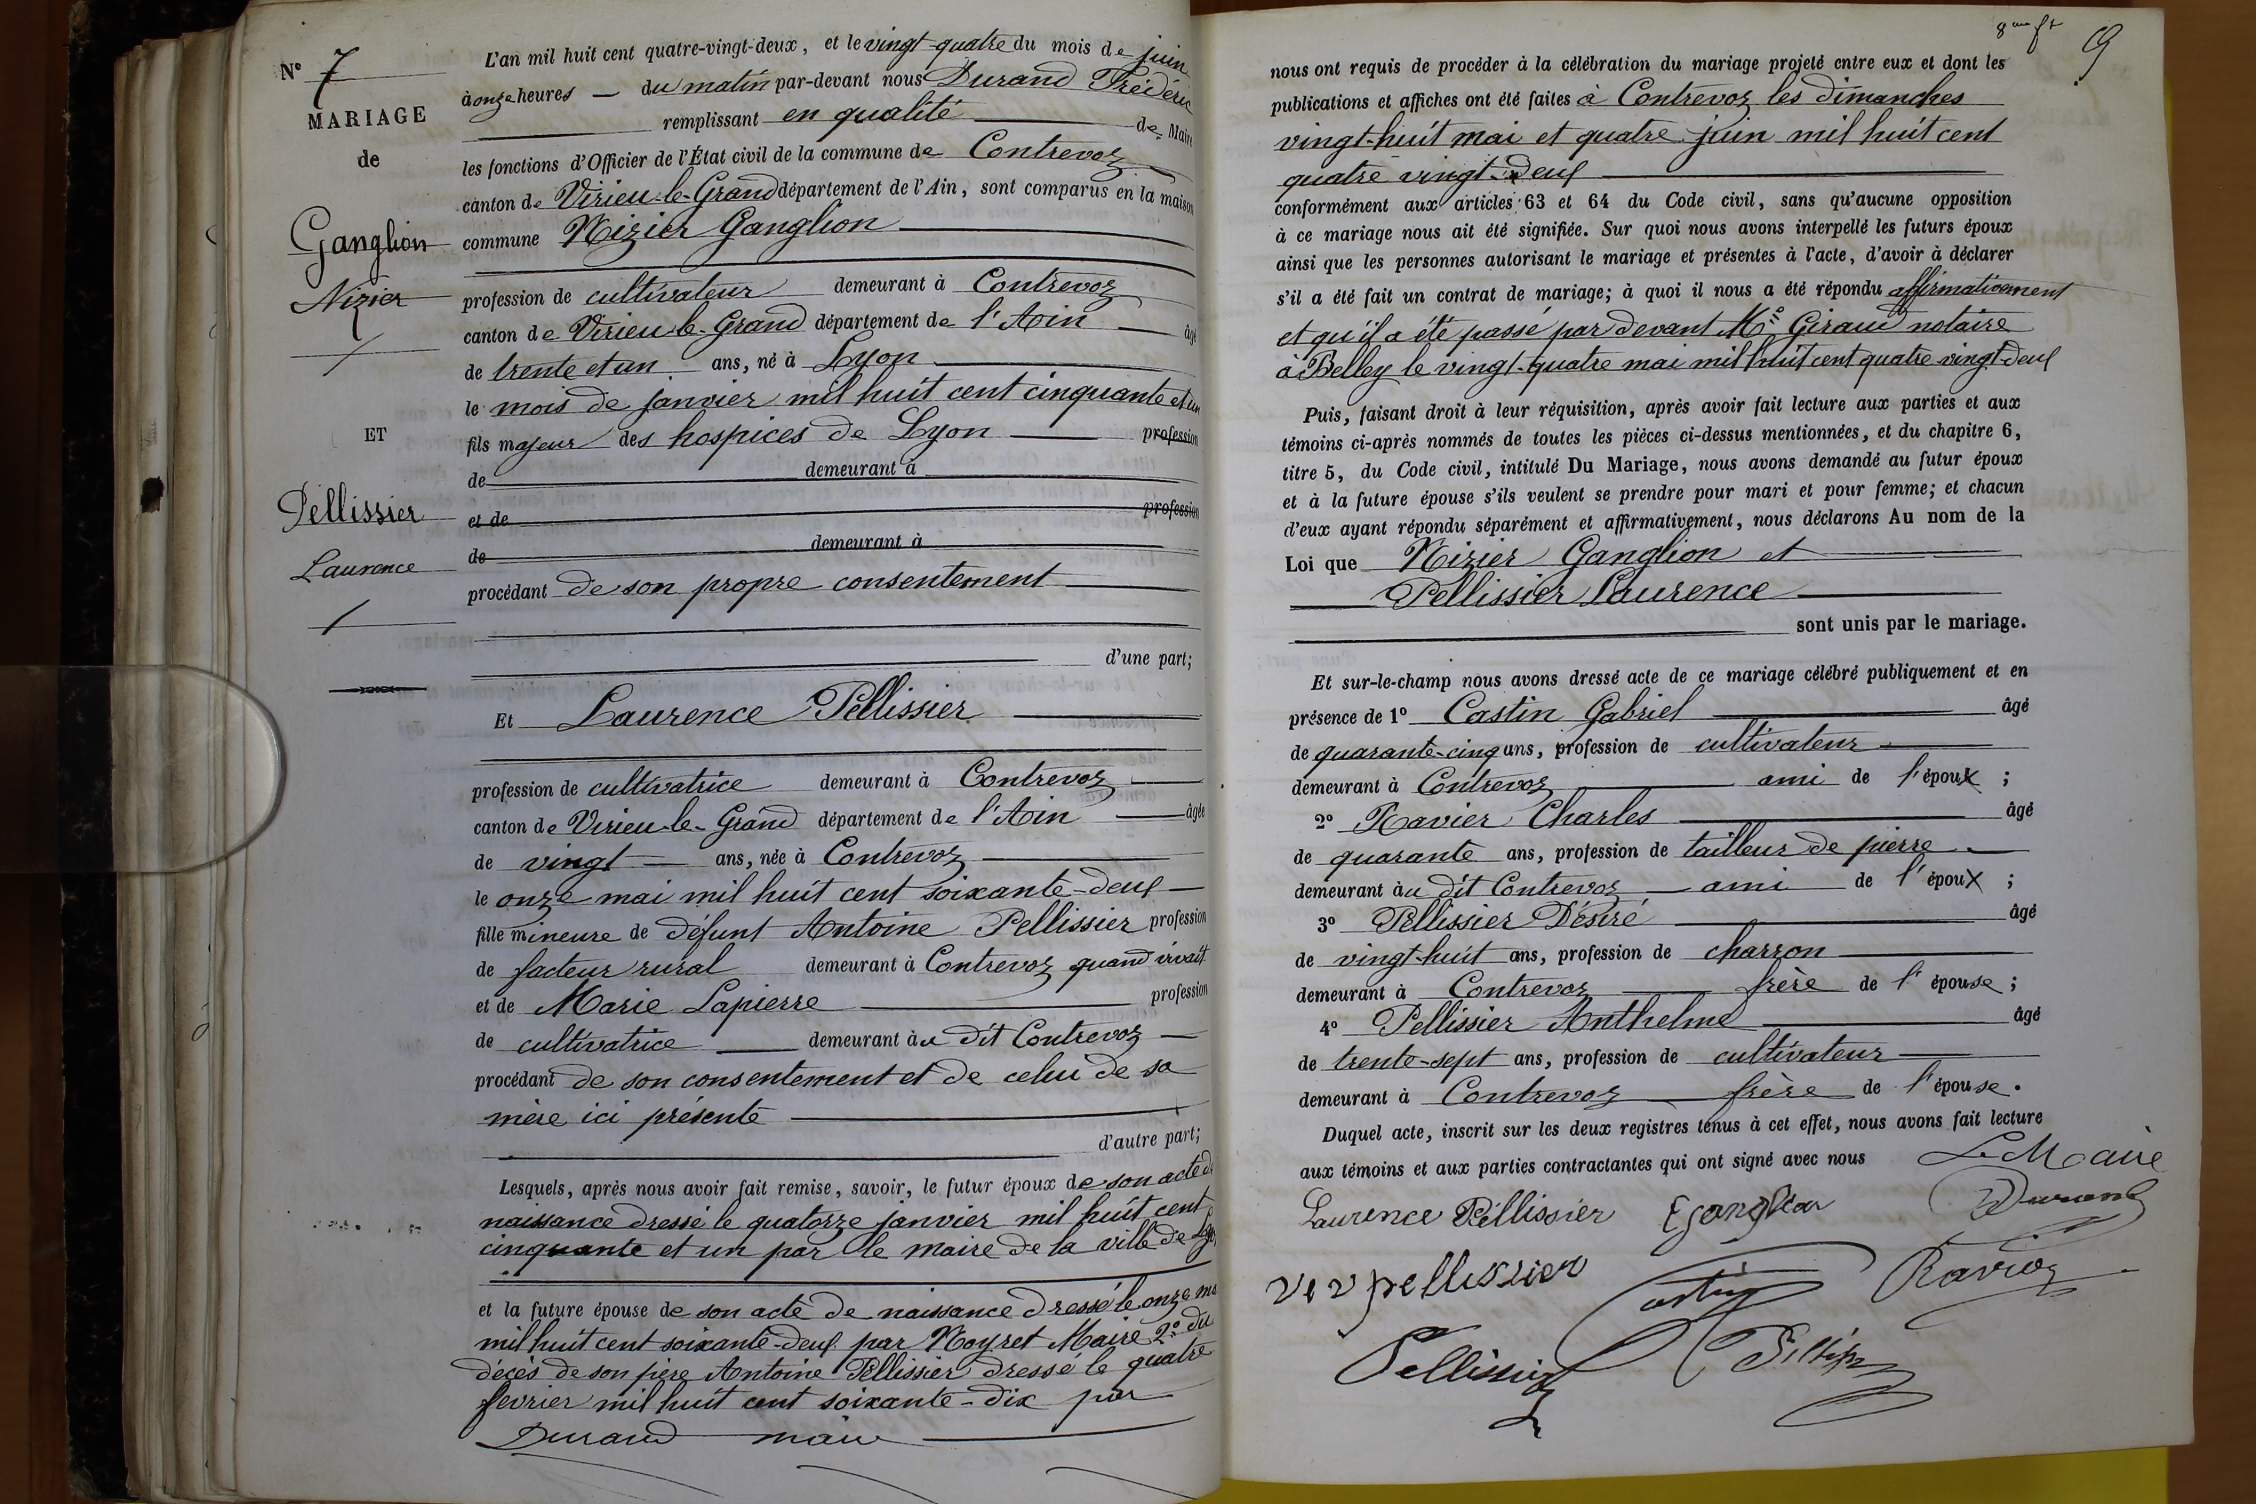 N° 7
MARIAGE
de
Ganglion
Nizier
ET
Pellissier
Laurence
L'an mil huit cent quatre-vingt-deux, et le vingt-quatre du mois de juin
à onze heures — du matin par-devant nous Durand Frédéric
remplissant en qualité de Maire
les fonctions d'Officier de l'État civil de la commune de Contrevoz
canton de Virieu-le-Grand département de l'Ain, sont comparus en la maison
commune Nizier Ganglion
profession de cultivateur demeurant à Contrevoz
canton de Virieu-le-Grand département de l'Ain âgé
de trente et un ans, né à Lyon
le mois de janvier mil huit cent cinquante et un
fils majeur des hospices de Lyon profession
de demeurant à
et de profession
de demeurant à
procédant de son propre consentement
d'une part;
Et Laurence Pellissier
profession de cultivatrice demeurant à Contrevoz
canton de Virieu-le-Grand département de l'Ain âgée
de vingt ans, née à Contrevoz
le onze mai mil huit cent soixante-deux
fille mineure de défunt Antoine Pellissier profession
de facteur rural demeurant à Contrevoz quand vivait
et de Marie Lapierre profession
de cultivatrice demeurant au dit Contrevoz
procédant de son consentement et de celui de sa
mère ici présente
d'autre part;
Lesquels, après nous avoir fait remise, savoir, le futur époux de son acte de
naissance dressé le quatorze janvier mil huit cent
cinquante et un par le maire de la ville de Lyon
et la future épouse de son acte de naissance dressé le onze mai
mil huit cent soixante-deux par Moyret Maire 2° du
décès de son père Antoine Pellissier dressé le quatre
fevrier mil huit cent soixante-dix par
Durand maire
9
nous ont requis de procéder à la célébration du mariage projeté entre eux et dont les
publications et affiches ont été faites à Contrevoz les dimanches
vingt-huit mai et quatre juin mil huit cent
quatre vingt-deux
conformément aux articles 63 et 64 du Code civil, sans qu'aucune opposition
à ce mariage nous ait été signifiée. Sur quoi nous avons interpellé les futurs époux
ainsi que les personnes autorisant le mariage et présentes à l'acte, d'avoir à déclarer
s'il a été fait un contrat de mariage; à quoi il nous a été répondu affirmativement
et qu'il a été passé par devant Me Giraud notaire
à Belley le vingt-quatre mai mil huit cent quatre vingt-deux
Puis, faisant droit à leur réquisition, après avoir fait lecture aux parties et aux
témoins ci-après nommés de toutes les pièces ci-dessus mentionnées, et du chapitre 6,
titre 5, du Code civil, intitulé Du Mariage, nous avons demandé au futur époux
et à la future épouse s'ils veulent se prendre pour mari et pour femme; et chacun
d'eux ayant répondu séparément et affirmativement, nous déclarons Au nom de la
Loi que Nizier Ganglion et
Pellissier Laurence
sont unis par le mariage.
Et sur-le-champ nous avons dressé acte de ce mariage célébré publiquement et en
présence de 1° Castin Gabriel âgé
de quarante-cinq ans, profession de cultivateur
demeurant à Contrevoz ami de l'époux ;
2° Ravier Charles âgé
de quarante ans, profession de tailleur de pierre
demeurant au dit Contrevoz ami de l'époux ;
3° Pellissier Désiré âgé
de vingt-huit ans, profession de charron
demeurant à Contrevoz frère de l'épouse ;
4° Pellissier Anthelme âgé
de trente-sept ans, profession de cultivateur
demeurant à Contrevoz frère de l'épouse.
Duquel acte, inscrit sur les deux registres tenus à cet effet, nous avons fait lecture
aux témoins et aux parties contractantes qui ont signé avec nous Le Maire
Laurence Pellissier Ganglion Durand
pellissier Castin Ravier
Pellissier